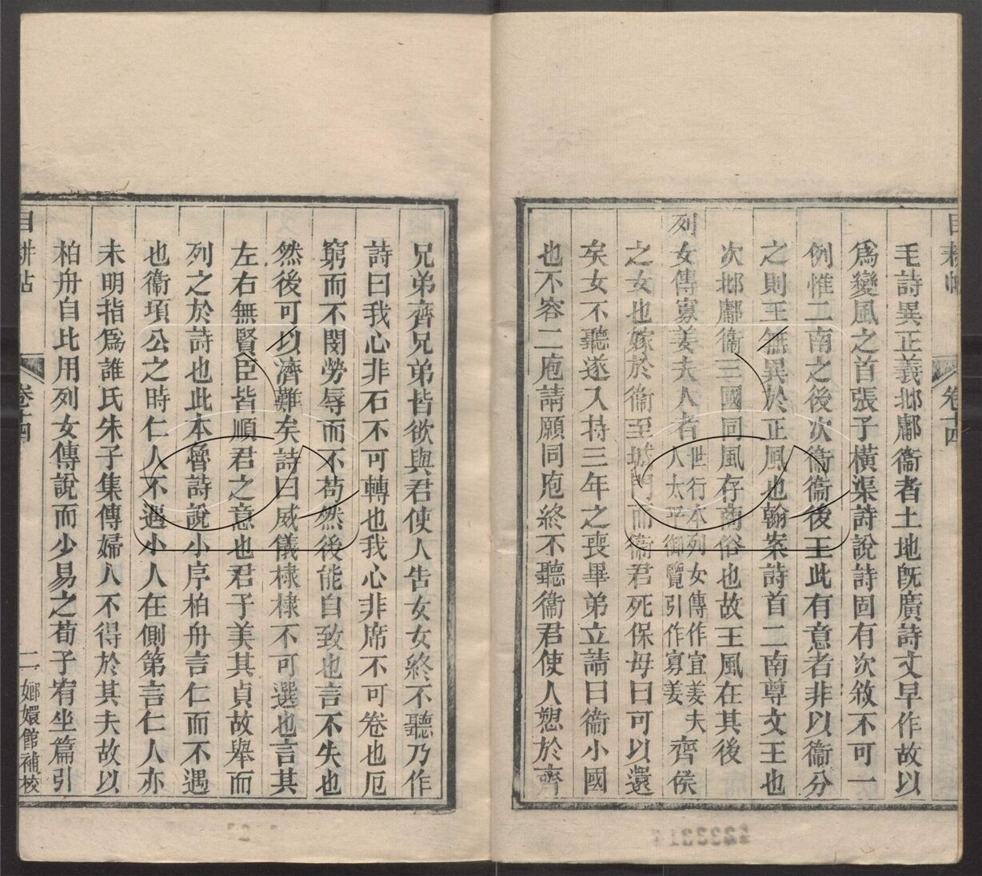 毛詩異正義邶鄘衞者土地旣廣詩文早作故以
爲變風之首張子橫渠詩說詩固有次敘不可一
例惟二南之後次衞衞後王此有意者非以衞分
之則王無異於正風也翰案詩首二南尊文王也
次邶鄘衞三國同風存商俗也故王風在其後
列女傳寡姜夫人者世行本列女傳作宜姜夫人太平御覽引作寡姜齊侯
之女也嫁於衞至城門而衞君死保母曰可以還
矣女不聽遂入持三年之喪畢弟立請曰衞小國
也不容二庖請願同庖終不聽衞君使人愬於齊
兄弟齊兄弟皆欲與君使人告女女終不聽乃作
詩曰我心非石不可轉也我心非席不可卷也厄
窮而不閔勞辱而不苟然後能自致也言不失也
然後可以濟難矣詩曰威儀棣棣不可選也言其
左右無賢臣皆順君之意也君子美其貞故舉而
列之於詩也此本魯詩說小序柏舟言仁而不遇
也衞頃公之時仁人不遇小人在側第言仁人亦
未明指爲誰氏朱子集傳婦人不得於其夫故以
柏舟自比用列女傳說而少易之荀子宥坐篇引
目耕帖
卷十四
二
嫏嬛館補校